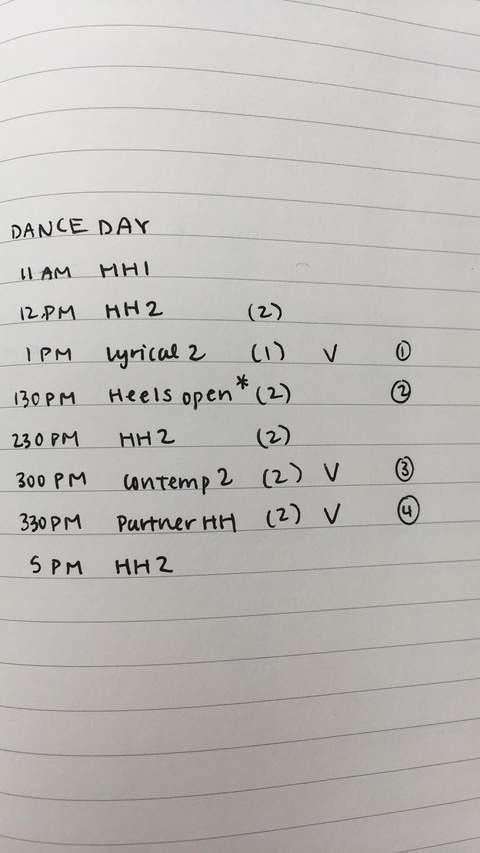 DANCE DAY
11 AM HH1
12.PM HH2 (2)
1 PM Lyrical 2 (1) V ①
130 PM Heels open* (2) ②
230 PM HH2 (2)
300 PM Contemp 2 (2) V ③
330 PM Partner HH (2) V ④
5 PM HH2